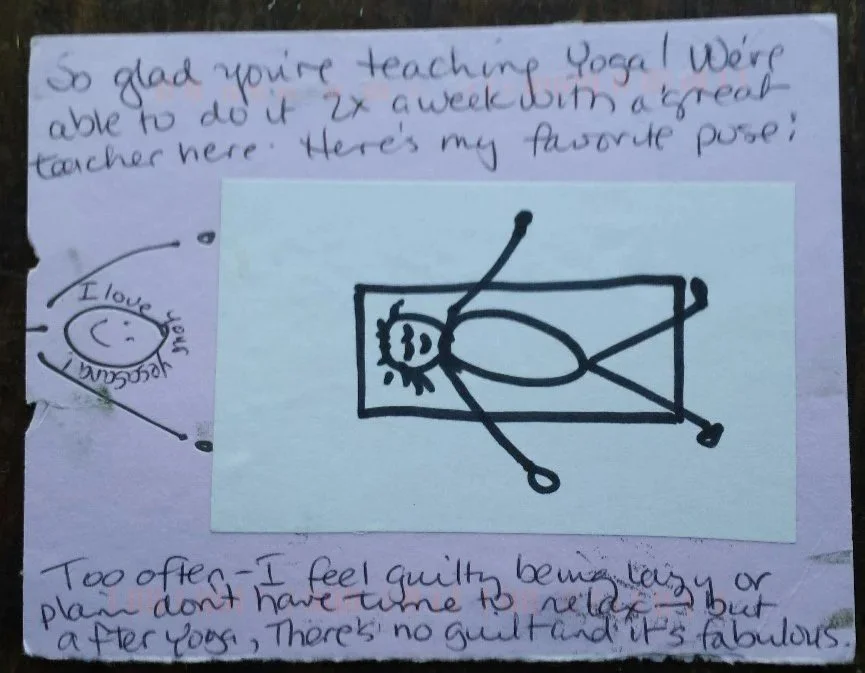 So glad you're teaching Yoga! We're
able to do it 2x a week with a great
teacher here. Here's my favorite puse:
I love your
yogasana!
Too often - I feel guilty being lazy or
plain don't have time to relax → but
after Yoga, There's no guilt and it's fabulous.